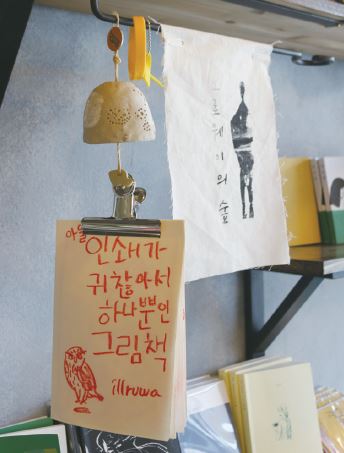 노르웨이의숲
인쇄가
귀찮아서
하나뿐인
그림책
illruwa